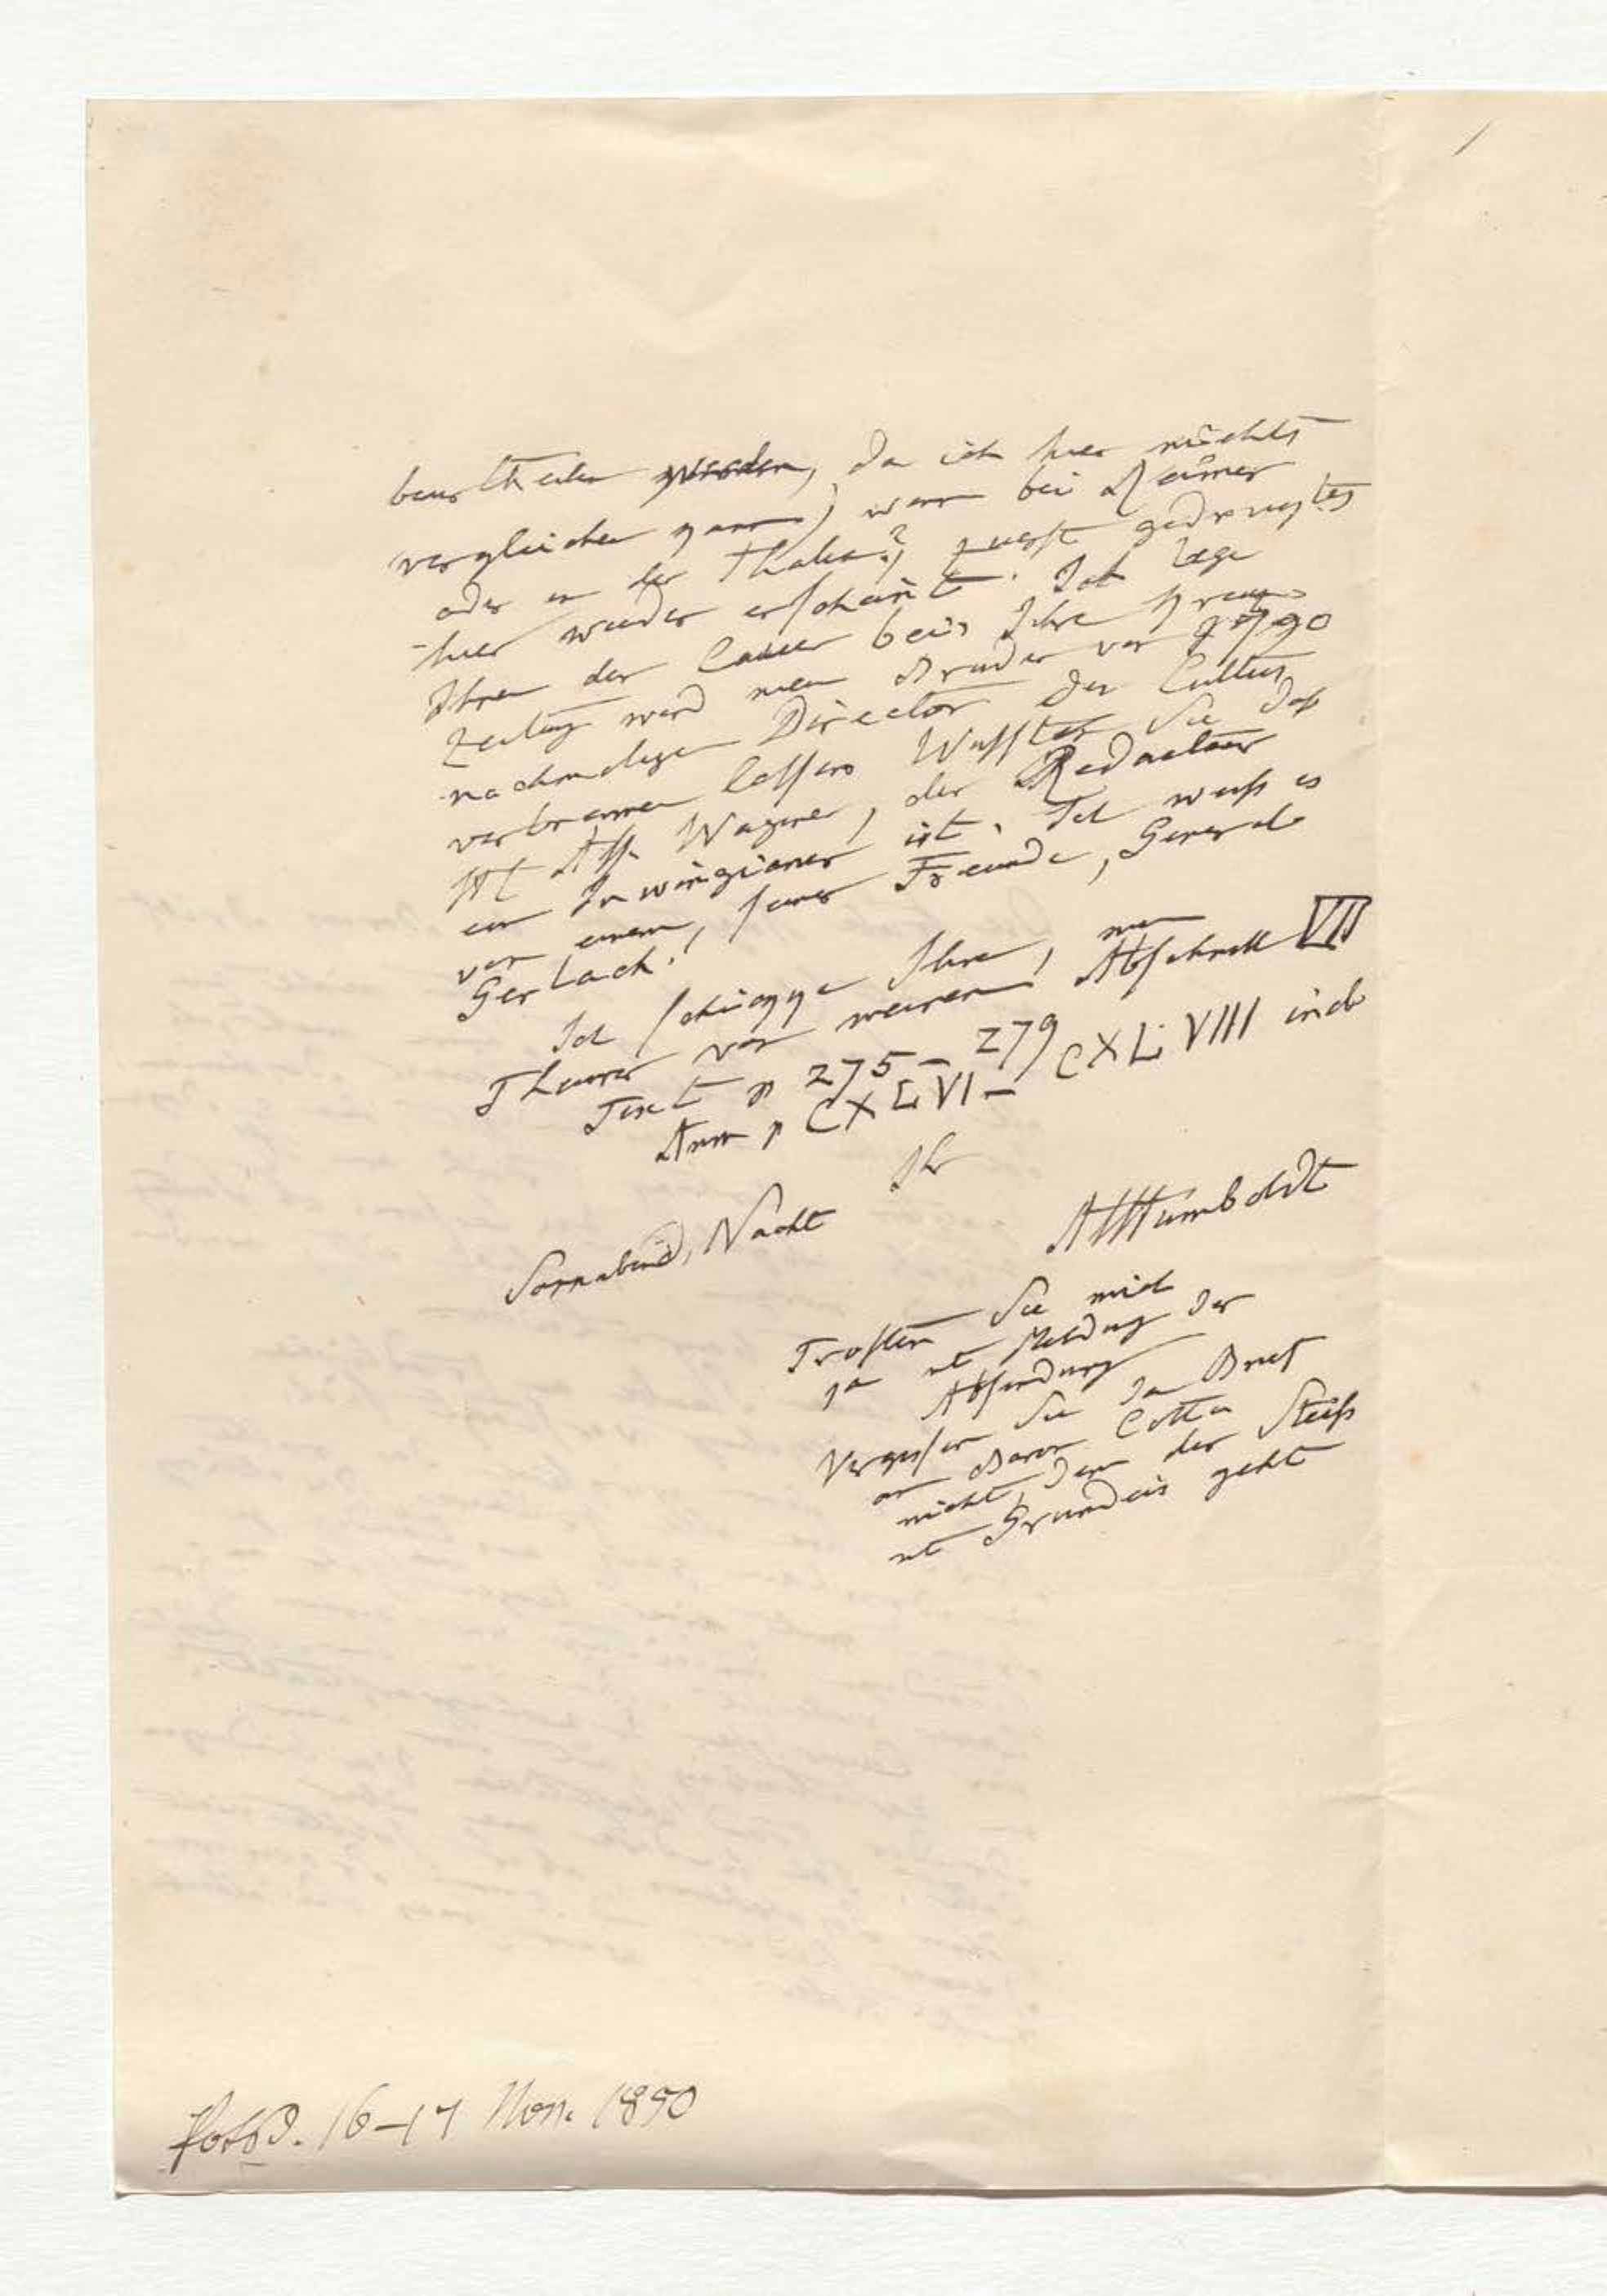 beurtheilen werden, da ich hier nichts
vergleichen kann) war bei Reimer
oder in der Thalia?, zuerst gedrucktes
hier wieder erscheint. Ich lege
Ihnen der bei, Ihre Kreuz
Zeitung wird mein Bruder vor 1790
nachmaligen Director des Cultus
verbrennen lassen Wussten Sie daß
Ass. Wagener, der Redacteur
ein Irwingianer ist. Ich weiß es
von einem, seiner Freunde, General
Gerlach!
Ich schicke Ihnen, mein
Theurer von meinem Abschnitt VII
Text p 275–279
Anm p CXLVI–CXLVIII incl
Ihr
AlHumboldt
Sonnabend, Nacht
Trösten Sie mich
ja mit Meldung der
Absendung
Vergessen Sie den Brief
an Baron Cotta
nicht, denn der Steiß
mit Grundeis geht
Potsd. 16–17 Nov. 1850